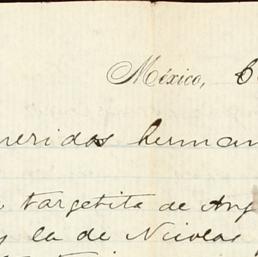 México, 6
ueridos herman
targetita de Ang
y la de Nicolas